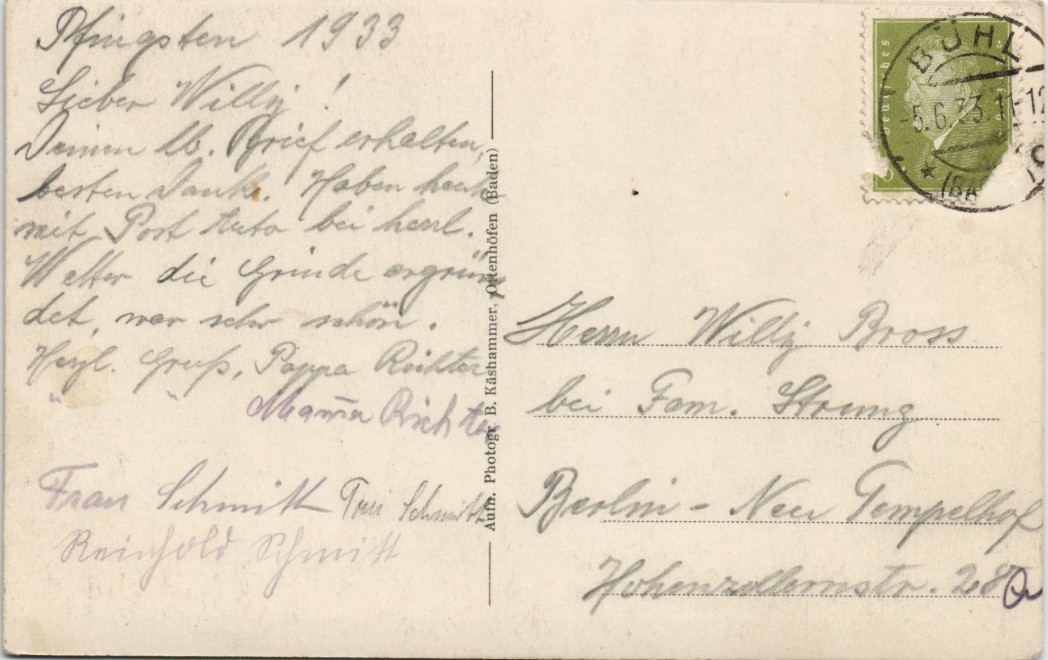 Pfingsten 1933
Lieber Willy!
Deinen lb. Brief erhalten,
besten Dank. Haben heute
mit Post Auto bei herrl.
Wetter die Grinde ergrün
det, war sehr schön.
Herzl. Gruß, Pappa Richter
" " Mama Richter
Frau Schmitt
Schmitt
Reinhold Schmitt
Aufn. Photogr. B. Käshammer, Ottenhöfen (Baden)
Deutsches
BÜHL
-5.6.33.11-12
Herrn Willy Bross
bei Fam. Strung
Berlin - Neu Tempelhof
Hohenzollernstr. 28